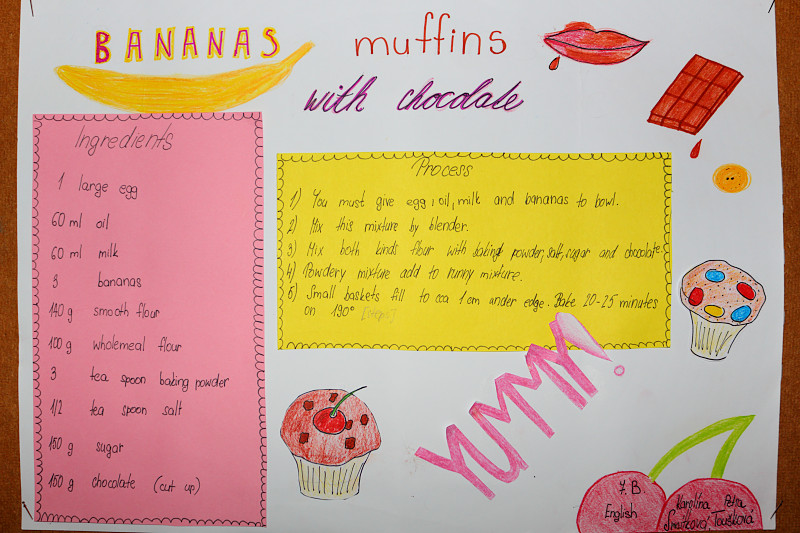 BANANAS muffins
with chocolate
Ingredients
1 large egg
60 ml oil
60 ml milk
3 bananas
140 g smooth flour
100 g wholemeal flour
3 tea spoon baking powder
1/2 tea spoon salt
150 g sugar
150 g chocolate (cut up)
Process
1) You must give egg, oil, milk and bananas to bowl.
2) Mix this mixture by blender.
3) Mix both kinds flour with baking powder, salt, sugar and chocolate.
4) Powdery mixture add to runny mixture.
5) Small baskets fill to cca 1 cm under edge. Bake 20-25 minutes
on 190°
YUMMY!
7. B
English
Karolína Petra